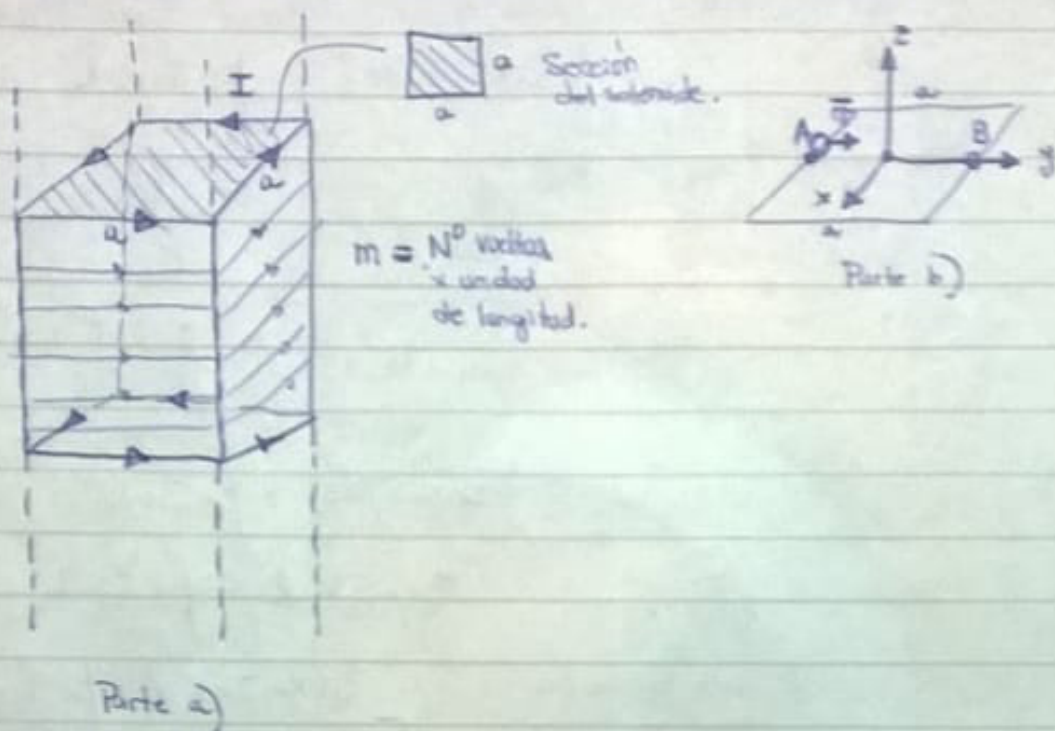 I
a
a
Sección
del solenoide.
a
a
m = Nº vueltas
x unidad
de longitud.
Parte a)
z
a
A
B
y
x
a
Parte b)